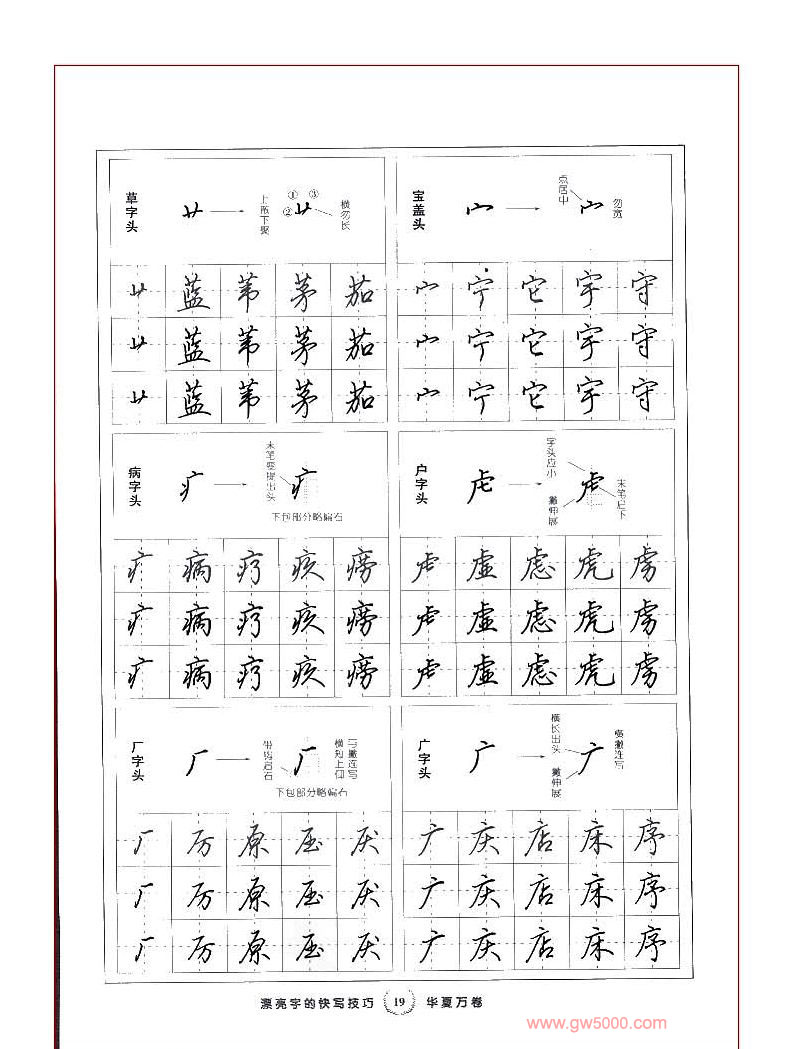 草字头
艹
上散下聚
① ③
② 艹
横勿长
艹 蓝 苇 茅 茄
艹 蓝 苇 茅 茄
艹 蓝 苇 茅 茄
宝盖头
宀
点居中
宀
勿宽
宀 宁 它 宇 守
宀 宁 它 宇 守
宀 宁 它 宇 守
病字头
疒
末笔变提出头
疒
下包部分略偏右
疒 病 疗 疾 痨
疒 病 疗 疾 痨
疒 病 疗 疾 痨
户字头
虍
字头应小
虍
撇伸展
末笔启下
虍 虚 虑 虎 虏
虍 虚 虑 虎 虏
虍 虚 虑 虎 虏
厂字头
厂
带钩启右
厂
与撇连写
横短上仰
下包部分略偏右
厂 厉 原 压 厌
厂 厉 原 压 厌
厂 厉 原 压 厌
广字头
广
横长出头
广
撇伸展
横撇连写
广 庆 店 床 序
广 庆 店 床 序
广 庆 店 床 序
漂亮字的快写技巧 19 华夏万卷
www.gw5000.com